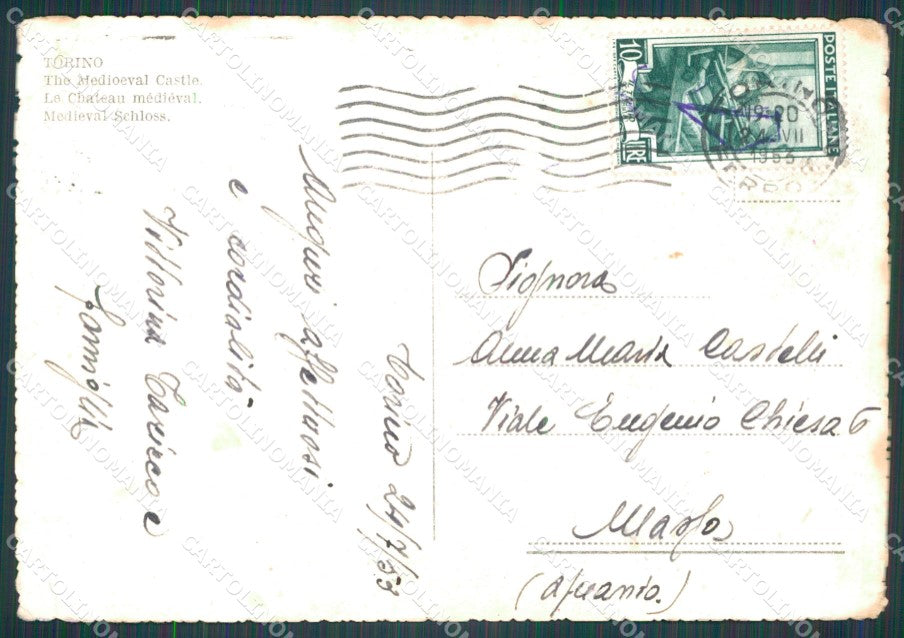 TORINO
The Medioeval Castle.
Le Chateau médiéval.
Medieval Schloss.
10
LIRE
POSTE ITALIANE
TORINO
24 VII
1953
Torino 24/7/53
Auguri affettuosi
e cordialità
Vittorina e
famiglia
Signora
Anna Maria Castelli
Viale Eugenio Chiesa 6
Massa
CARTOLINOMANIA